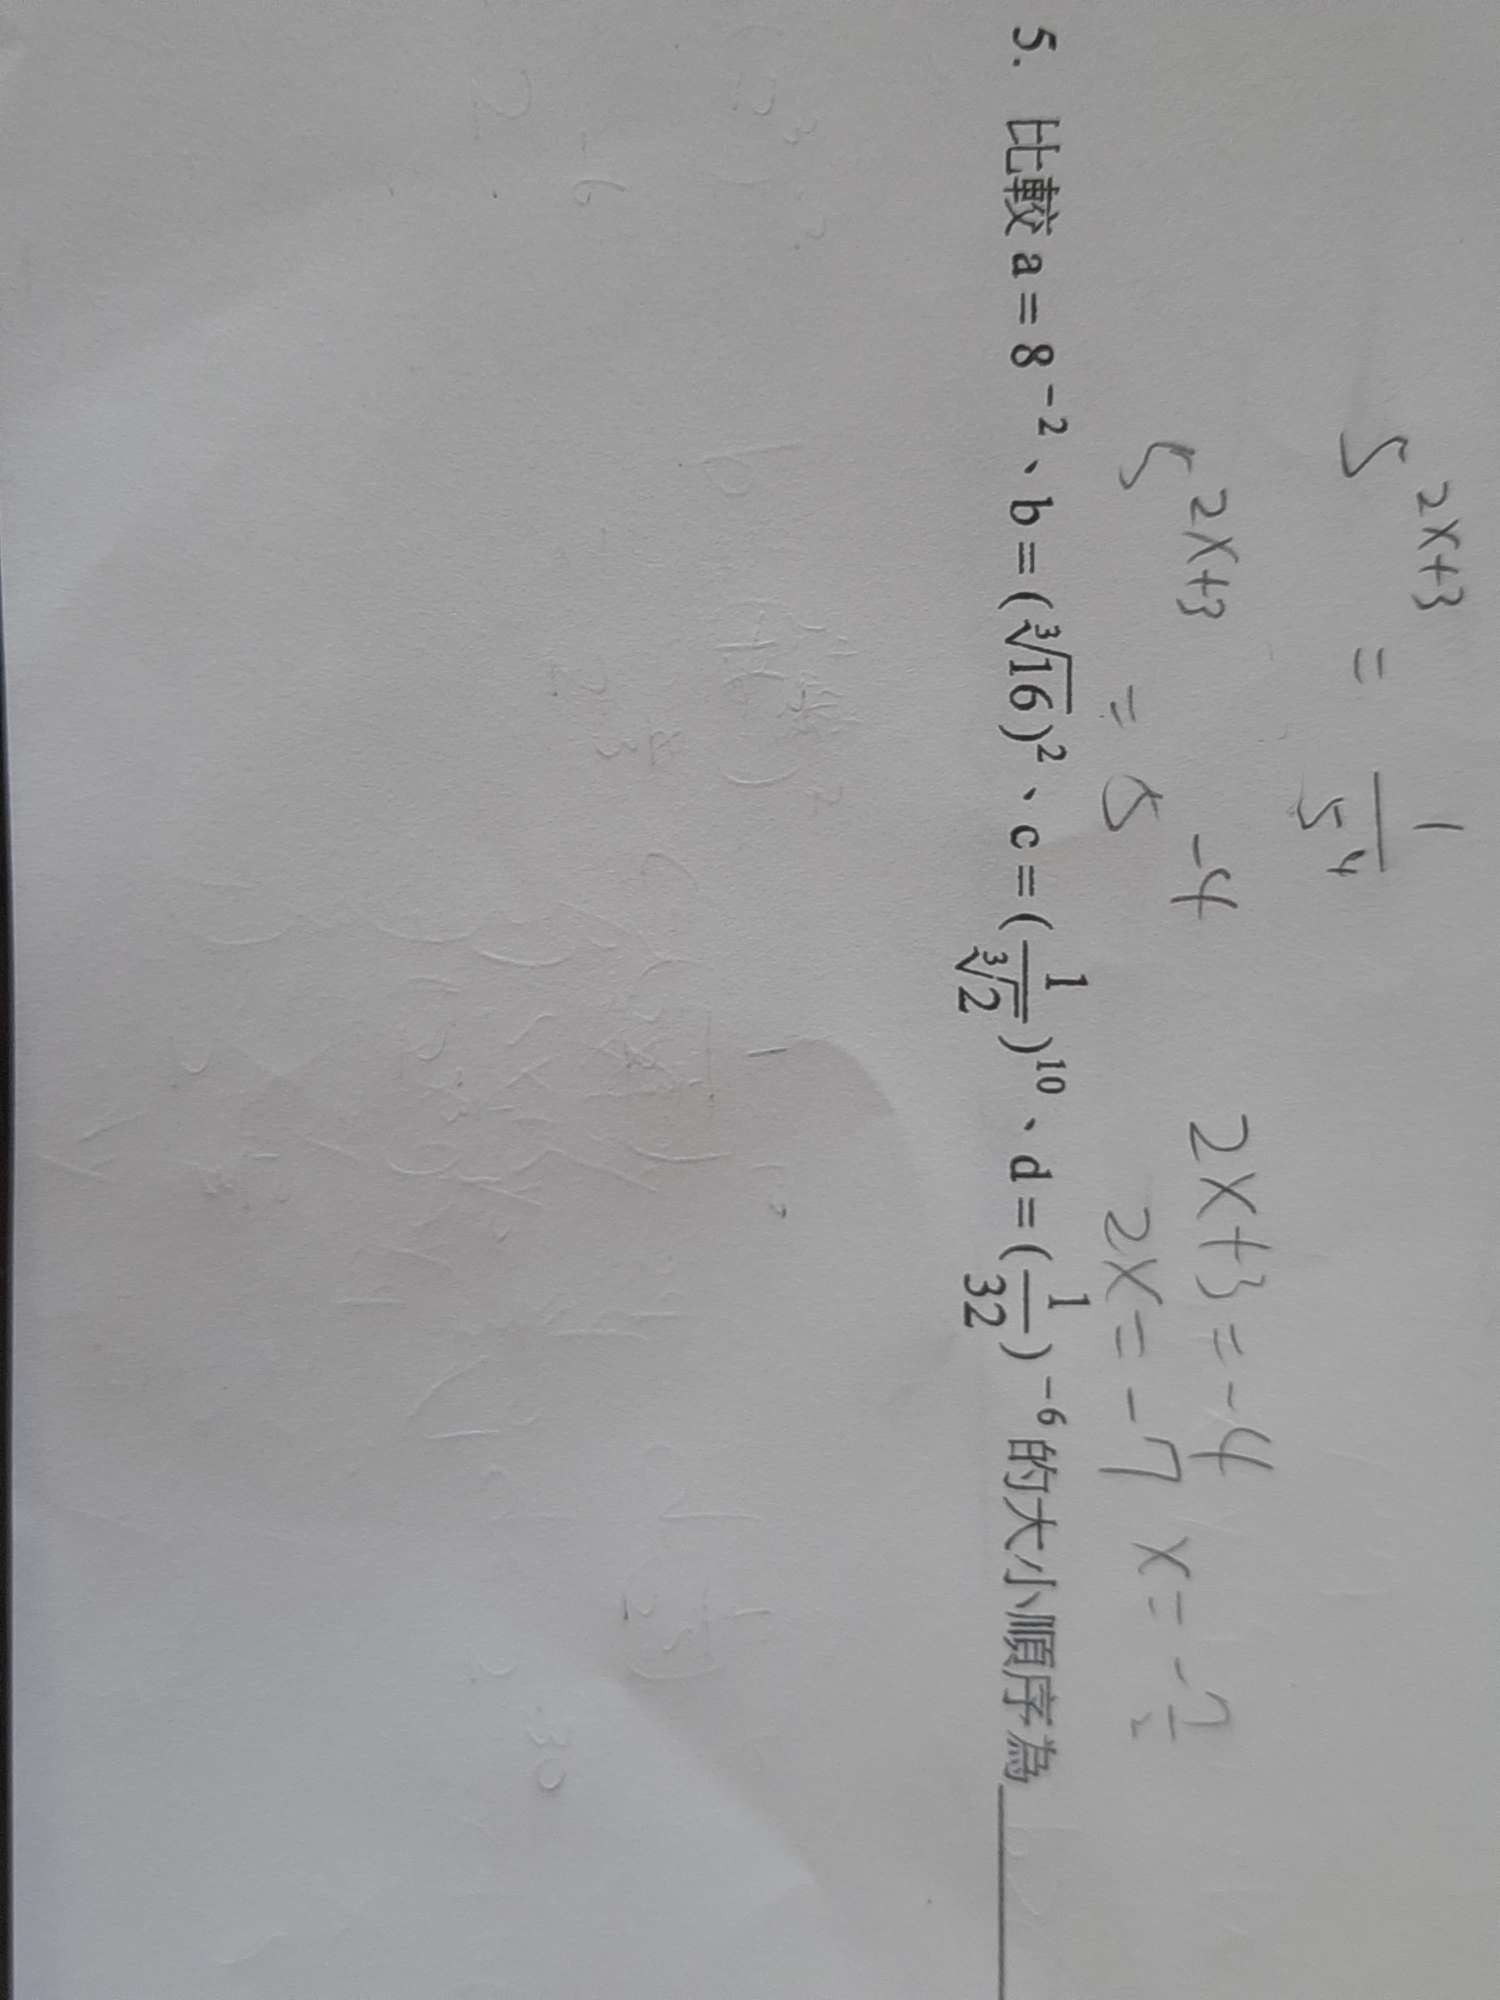 5^{2x+3} = \frac{1}{5^4}
5^{2x+3} = 5^{-4}
2x+3=-4
2x=-7 x=-\frac{7}{2}
5. 比較 a=8^{-2}、b=(\sqrt[3]{16})^2、c=(\frac{1}{\sqrt[3]{2}})^{10}、d=(\frac{1}{32})^{-6}的大小順序為______